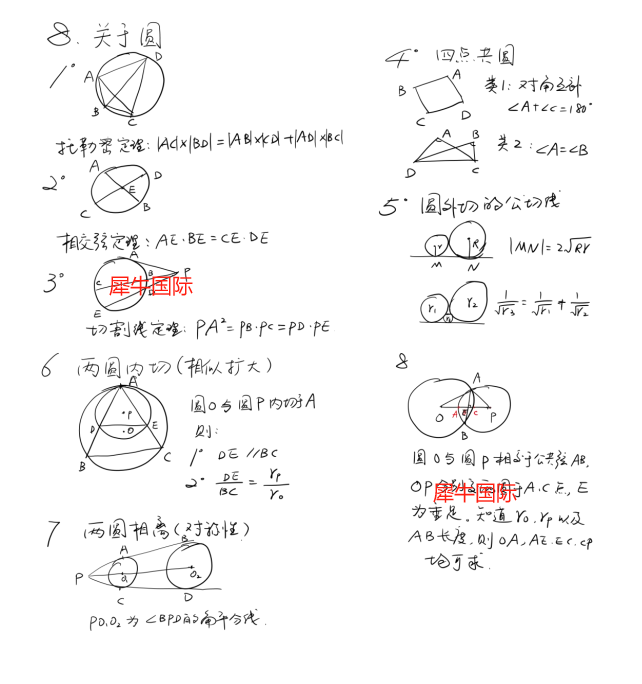 8. 关于圆
1°
A
D
B
C
托勒密定理: |AC|x|BD|=|AB|x|CD|+|AD|x|BC|
2°
A
D
E
C
B
相交弦定理: AE·BE=CE·DE
3°
A
B
P
C
D
E
犀牛国际
切割线定理: PA²=PB·PC=PD·PE
4° 四点共圆
B
A
C
D
类1: 对角互补
∠A+∠C=180°
A
B
D
C
类2: ∠A=∠B
5° 圆外切的公切线
r
R
M
N
|MN|=2√Rr
r₁
r₃
r₂
1/√r₃ = 1/√r₁ + 1/√r₂
6 两圆内切(相似扩大)
A
P
D
O
E
B
C
圆O与圆P内切于A
则:
1° DE//BC
2° DE/BC = rp/ro
7 两圆相离(对称性)
A
B
P
O₁
O₂
C
D
PO₁O₂为∠BPD的角平分线.
8
A
O
A
E
C
P
B
圆O与圆P相交于公共弦AB,
OP
犀牛国际
圆于A.C点, E
为垂足. 知道ro, rp以及
AB长度, 则OA, AE. EC. CP
均可求.